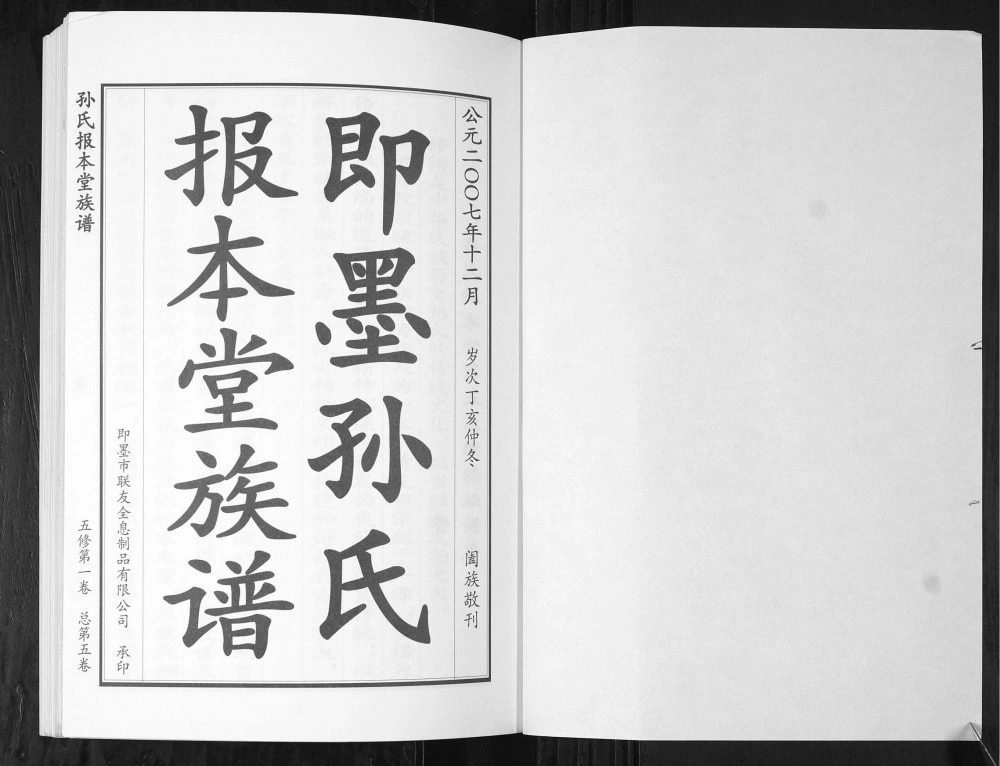 公元二〇〇七年十二月 岁次丁亥仲冬 阖族敬刊
即墨孙氏
报本堂族谱
即墨市联友全息制品有限公司 承印
孙氏报本堂族谱
五修第一卷 总第五卷